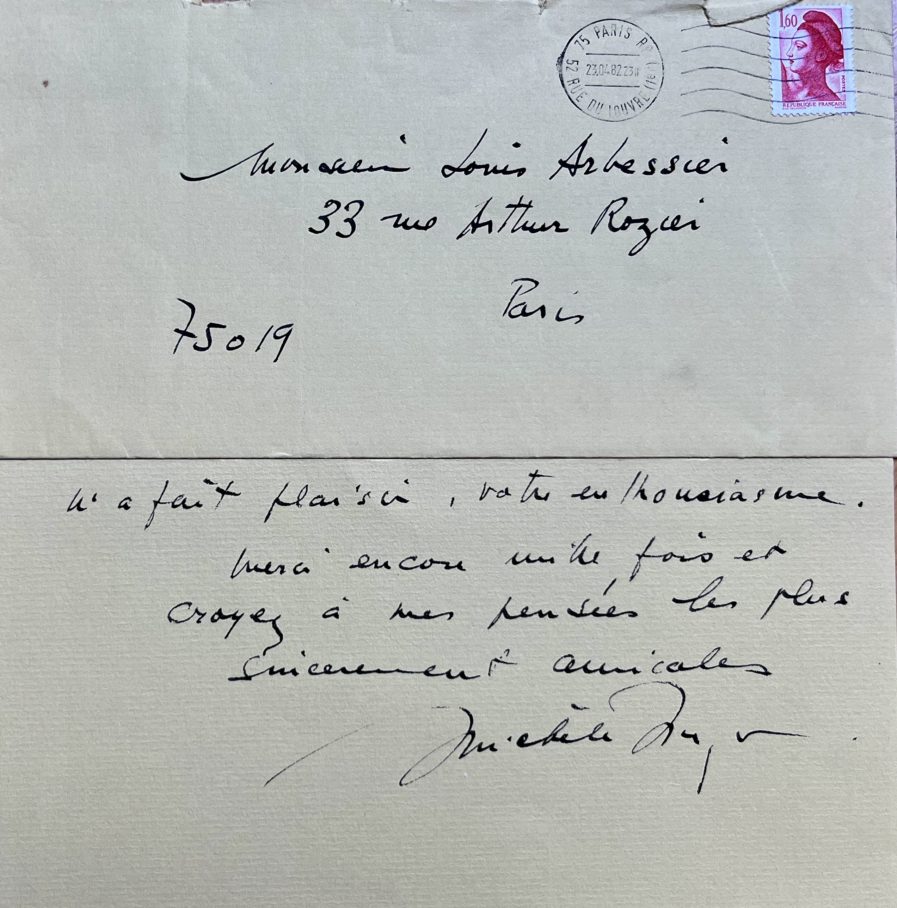 1,60
RÉPUBLIQUE FRANÇAISE
75 PARIS RP (1er)
23.04.82 23H
52 RUE DU LOUVRE
Monsieur Louis Arbessier
33 rue Arthur Rozier
Paris
75019
m'a fait plaisir, votre enthousiasme.
Merci encore mille fois et
croyez à mes pensées les plus
sincèrement amicales
Michèle